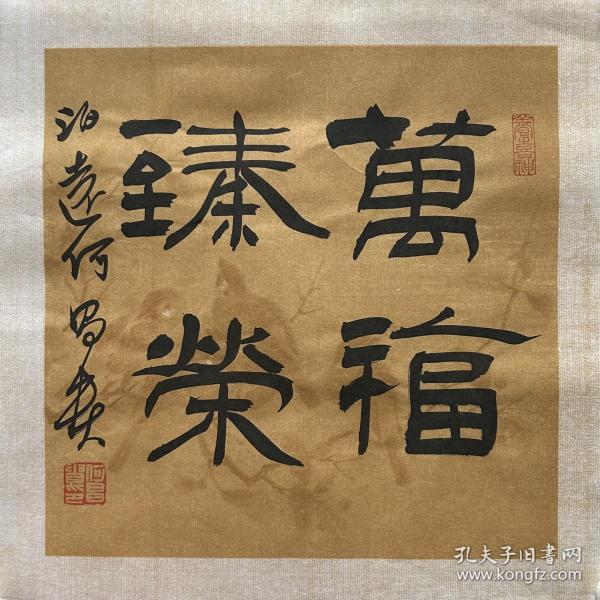 萬福
臻榮
泊遠何昌貴
孔夫子旧書网
www.kongfz.com